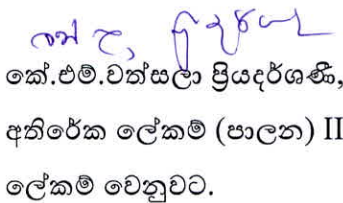 කේ.එම්.වත්සලා ප්‍රියදර්ශණී,
අතිරේක ලේකම් (පාලන) II
ලේකම් වෙනුවට.